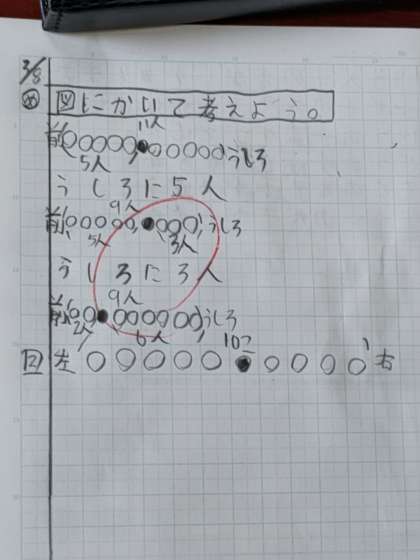 2/8
め 図にかいて考えよう。
11人
前 うしろ
5人
うしろに5人
9人
前 うしろ
5人 3人
うしろに3人
9人
前 うしろ
2人 6人
10こ
左 右